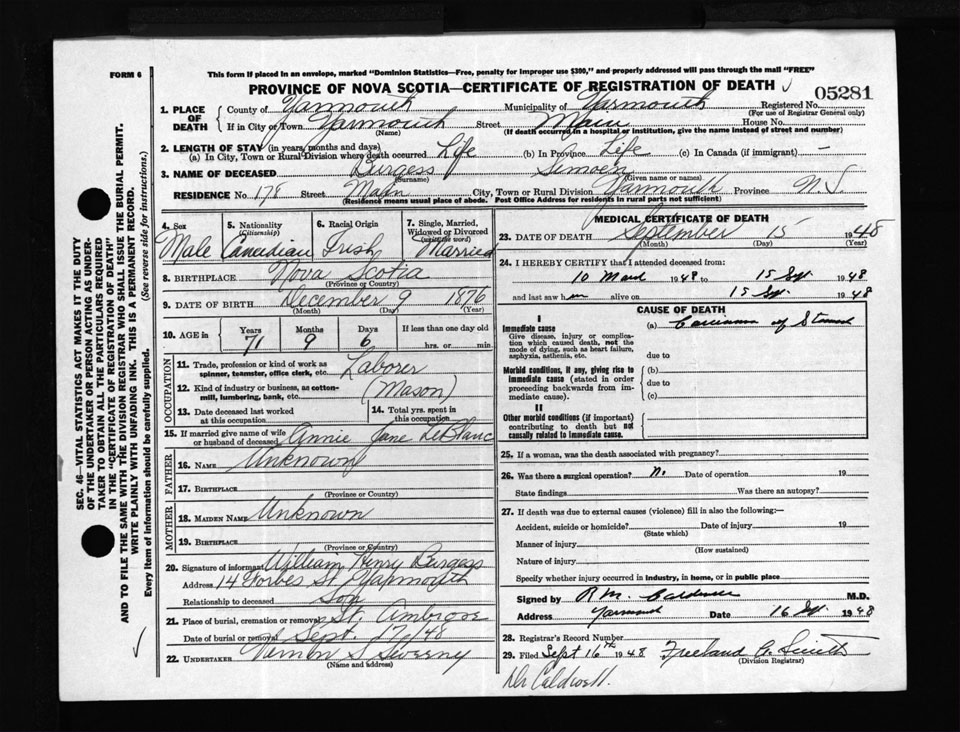 FORM 6
This form if placed in an envelope, marked "Dominion Statistics—Free, penalty for improper use $300," and properly addressed will pass through the mail "FREE"
PROVINCE OF NOVA SCOTIA—CERTIFICATE OF REGISTRATION OF DEATH
05281
1. PLACE OF DEATH
County of Yarmouth Municipality of Yarmouth Registered No.
(For use of Registrar General only)
If in City or Town Yarmouth Street Main House No.
(Name) (If death occurred in a hospital or institution, give the name instead of street and number)
2. LENGTH OF STAY (in years, months and days)
(a) In City, Town or Rural Division where death occurred Life (b) In Province Life (c) In Canada (if immigrant) —
3. NAME OF DECEASED Burgess Simeon
(Surname) (Given name or names)
RESIDENCE No. 178 Street Main City, Town or Rural Division Yarmouth Province N S.
(Residence means usual place of abode. Post Office Address for residents in rural parts not sufficient)
4. Sex
Male
5. Nationality
(Citizenship)
Canadian
6. Racial Origin
Irish
7. Single, Married,
Widowed or Divorced
(write the word)
Married
8. BIRTHPLACE Nova Scotia
(Province or Country)
9. DATE OF BIRTH December 9 1876
(Month) (Day) (Year)
10. AGE in
Years Months Days If less than one day old
71 9 6 hrs. or min.
OCCUPATION
11. Trade, profession or kind of work as
spinner, teamster, office clerk, etc. Laborer
12. Kind of industry or business, as cotton-
mill, lumbering, bank, etc. (Mason)
13. Date deceased last worked
at this occupation
14. Total yrs. spent in
this occupation
15. If married give name of wife
or husband of deceased Annie Jane LeBlanc
FATHER
16. NAME Unknown
17. BIRTHPLACE
(Province or Country)
MOTHER
18. MAIDEN NAME Unknown
19. BIRTHPLACE
(Province or Country)
20. Signature of informant William Henry Burgess
Address 14 Forbes St. Yarmouth
Relationship to deceased Son
21. Place of burial, cremation or removal St. Ambrose
Date of burial or removal Sept. 17/48
22. UNDERTAKER Vernon S Sweeny
(Name and address)
MEDICAL CERTIFICATE OF DEATH
23. DATE OF DEATH September 15 1948
(Month) (Day) (Year)
24. I HEREBY CERTIFY that I attended deceased from:
10 March 1948 to 15 Sep. 1948
and last saw him alive on 15 Sep. 1948
CAUSE OF DEATH
I
Immediate cause (a) Carcinoma of Stomach
Give disease, injury or complica-
tion which caused death, not the
mode of dying, such as heart failure,
asphyxia, asthenia, etc. due to
Morbid conditions, if any, giving rise to (b)
immediate cause (stated in order due to
proceeding backwards from im-
mediate cause). (c)
II
Other morbid conditions (if important)
contributing to death but not
causally related to immediate cause.
25. If a woman, was the death associated with pregnancy?
26. Was there a surgical operation? No Date of operation 19
State findings Was there an autopsy?
27. If death was due to external causes (violence) fill in also the following:—
Accident, suicide or homicide? Date of injury 19
(State which)
Manner of injury
(How sustained)
Nature of injury
Specify whether injury occurred in industry, in home, or in public place
Signed by R M. Caldwell M.D.
Address Yarmouth Date 16 Sep. 1948
28. Registrar's Record Number
29. Filed Sept 16th 1948 Freeland A. Smith
(Division Registrar)
Dr Caldwell.
SEC. 46—VITAL STATISTICS ACT MAKES IT THE DUTY
OF THE UNDERTAKER OR PERSON ACTING AS UNDER-
TAKER TO OBTAIN ALL THE PARTICULARS REQUIRED
IN THE "CERTIFICATE OF REGISTRATION OF DEATH"
AND TO FILE THE SAME WITH THE DIVISION REGISTRAR WHO SHALL ISSUE THE BURIAL PERMIT.
WRITE PLAINLY WITH UNFADING INK. THIS IS A PERMANENT RECORD.
Every item of information should be carefully supplied. (See reverse side for instructions.)